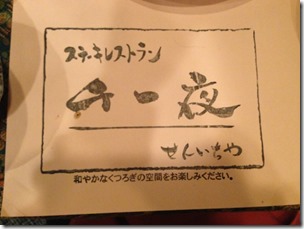 ステーキレストラン
千一夜
せんいちや
和やかなくつろぎの空間をお楽しみください。